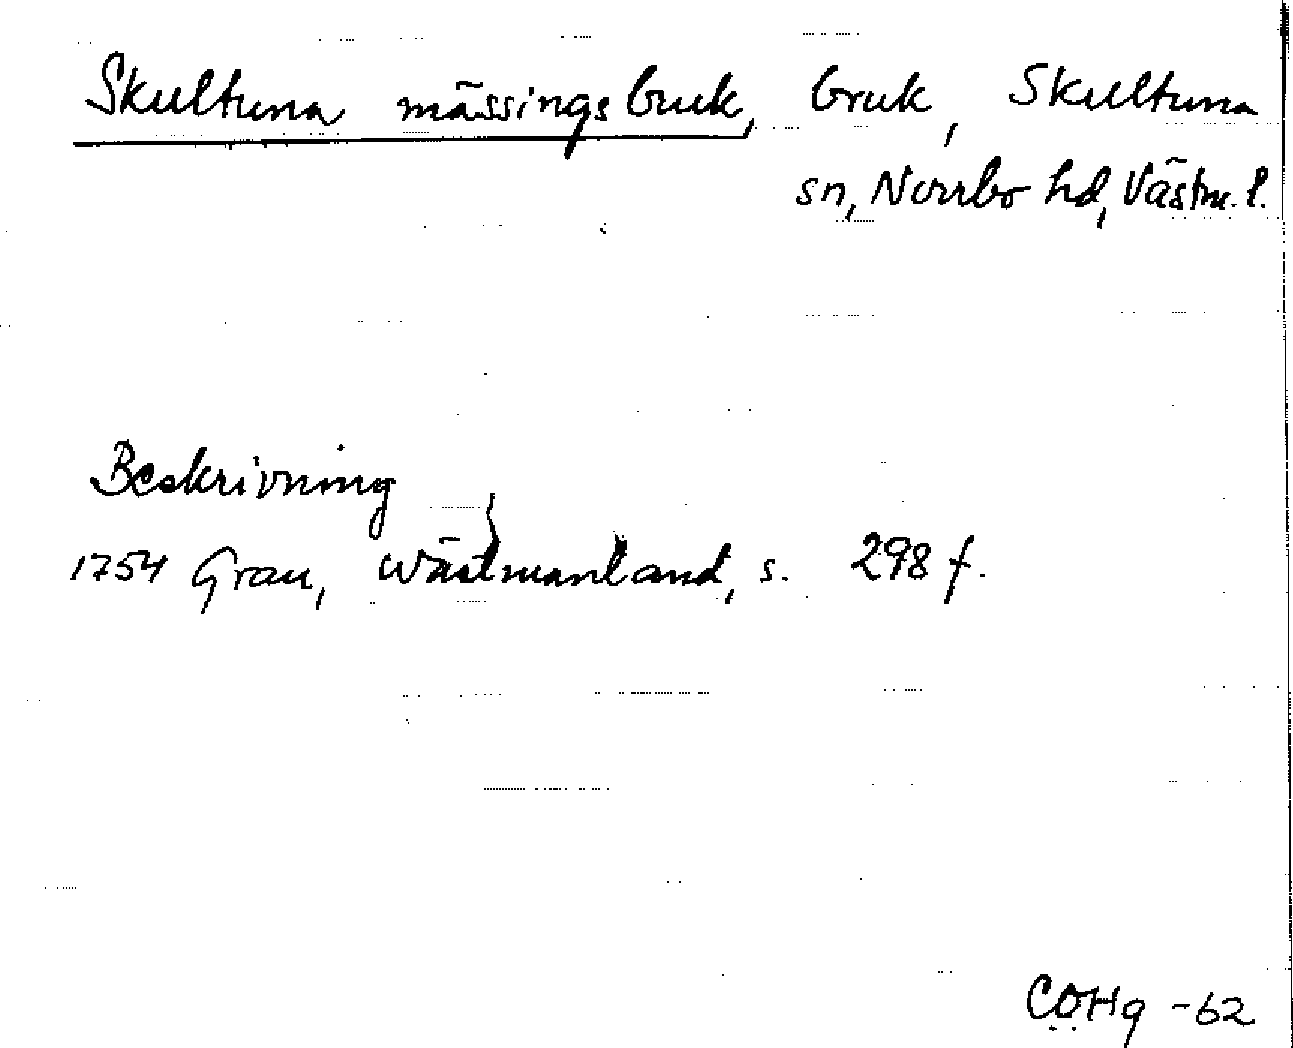 Skultuna mässingsbruk, bruk, Skultuna
sn, Norrbo hd, Västm. l.
Beskrivning
1754 Grau, Wästmanland, s. 298 f.
CÖHg -62